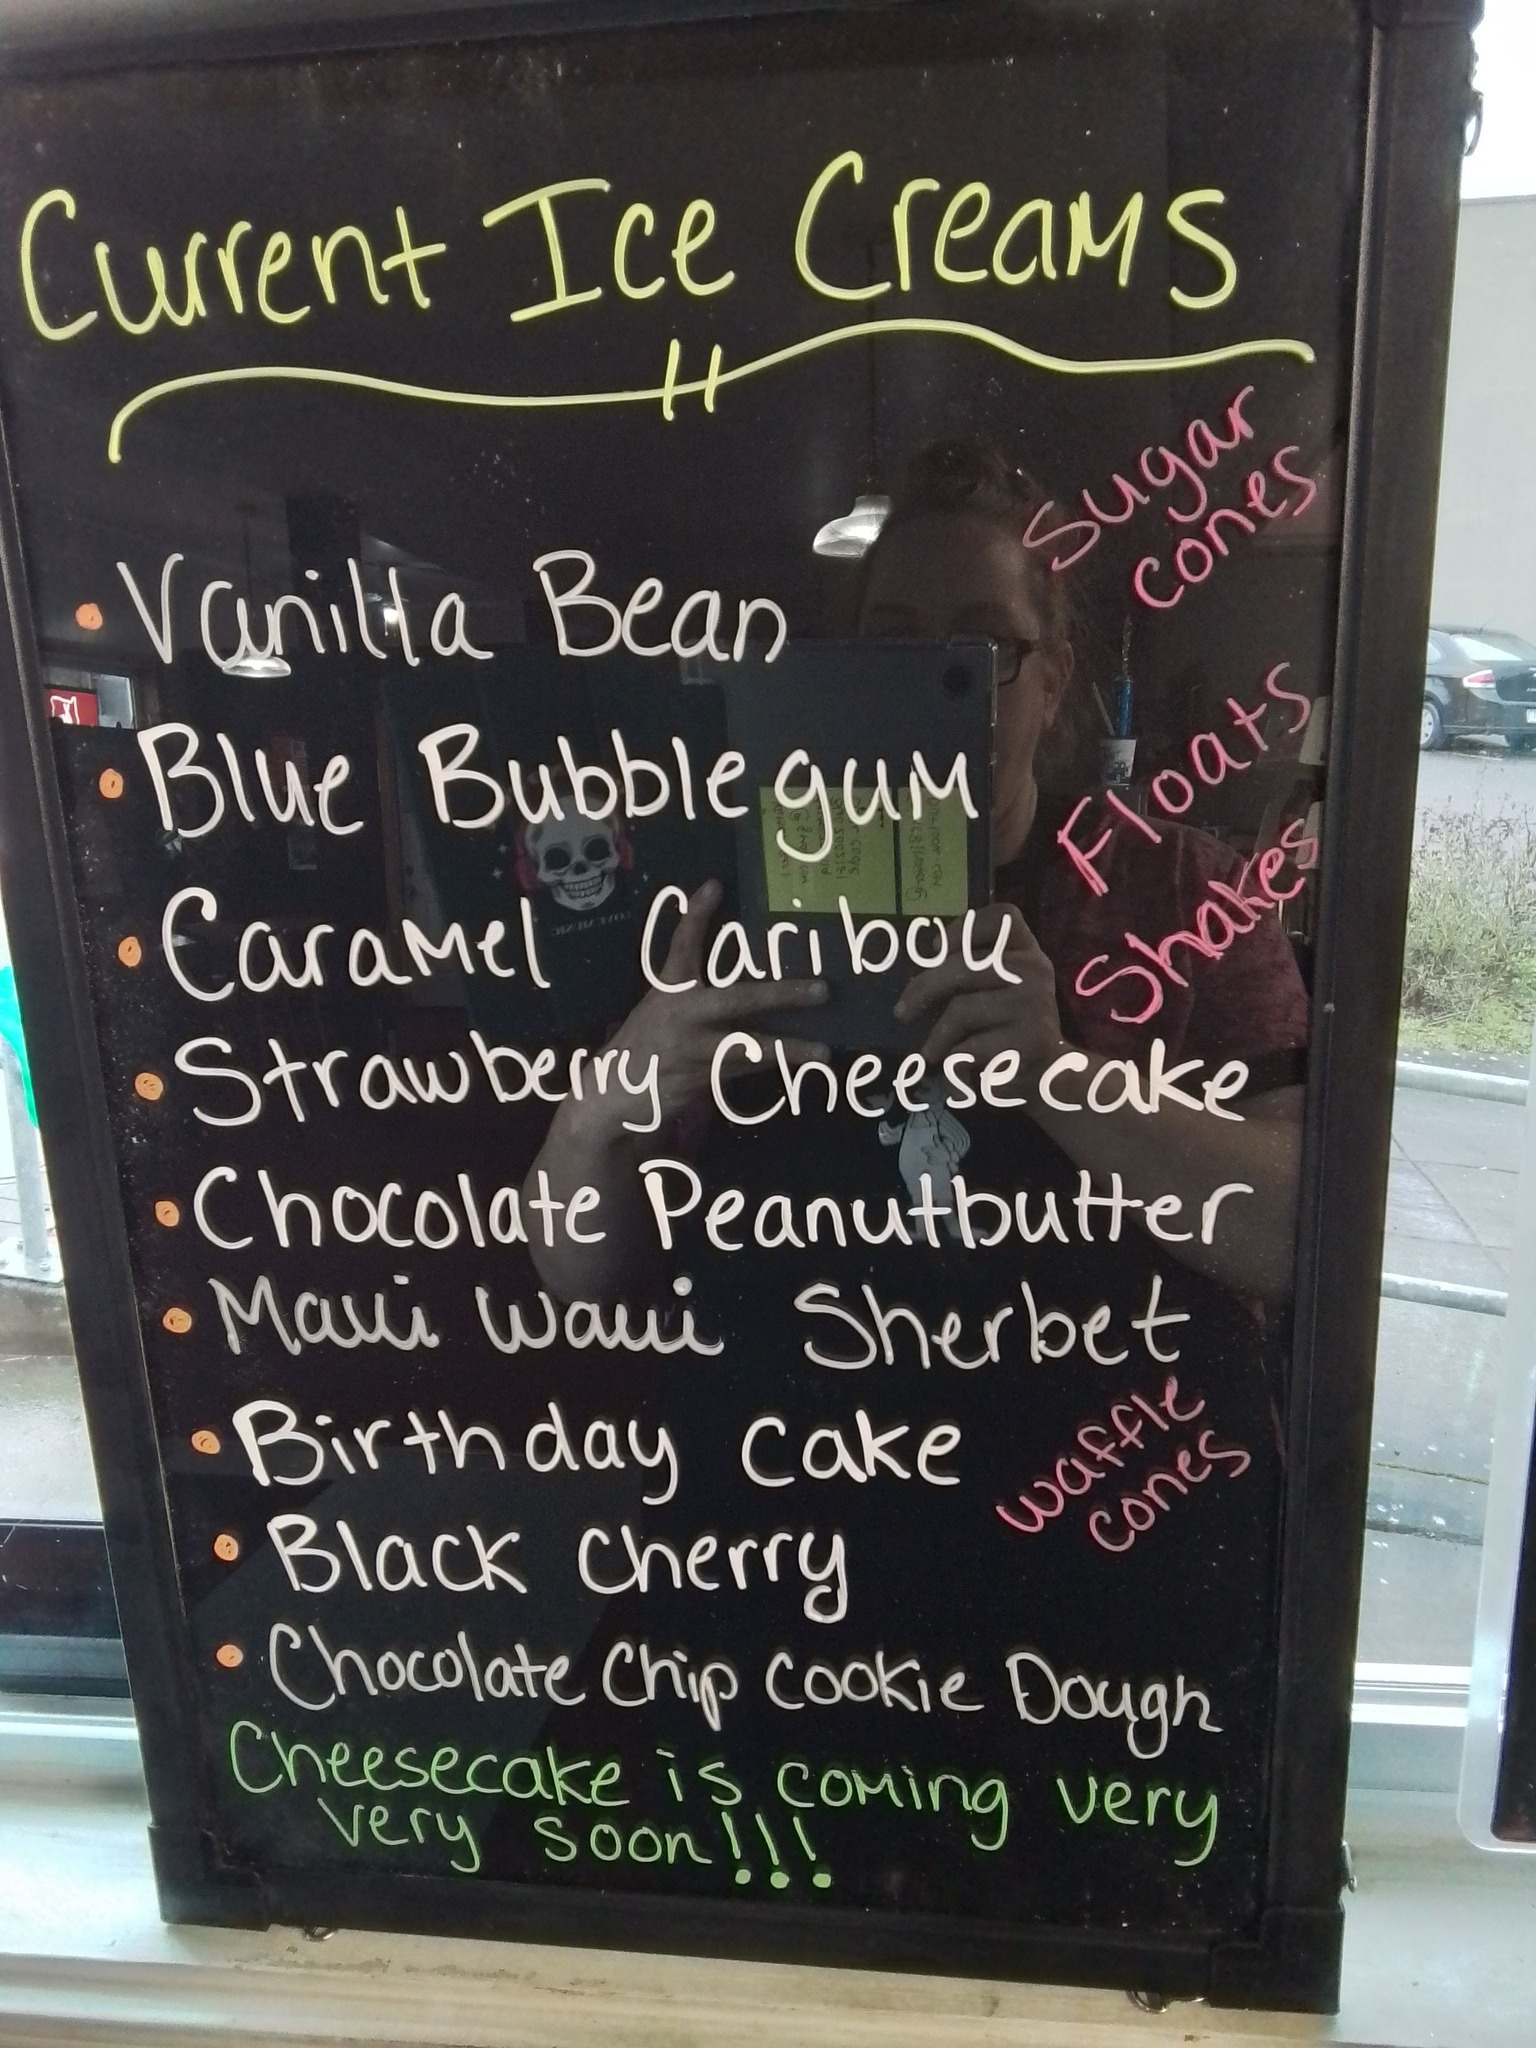 Current Ice Creams
Sugar
cones
• Vanilla Bean
• Blue Bubblegum
Floats
Shakes
• Caramel Caribou
• Strawberry Cheesecake
• Chocolate Peanutbutter
• Maui Waui Sherbet
• Birthday Cake
waffle
cones
• Black Cherry
• Chocolate Chip Cookie Dough
Cheesecake is coming very
very soon!!!